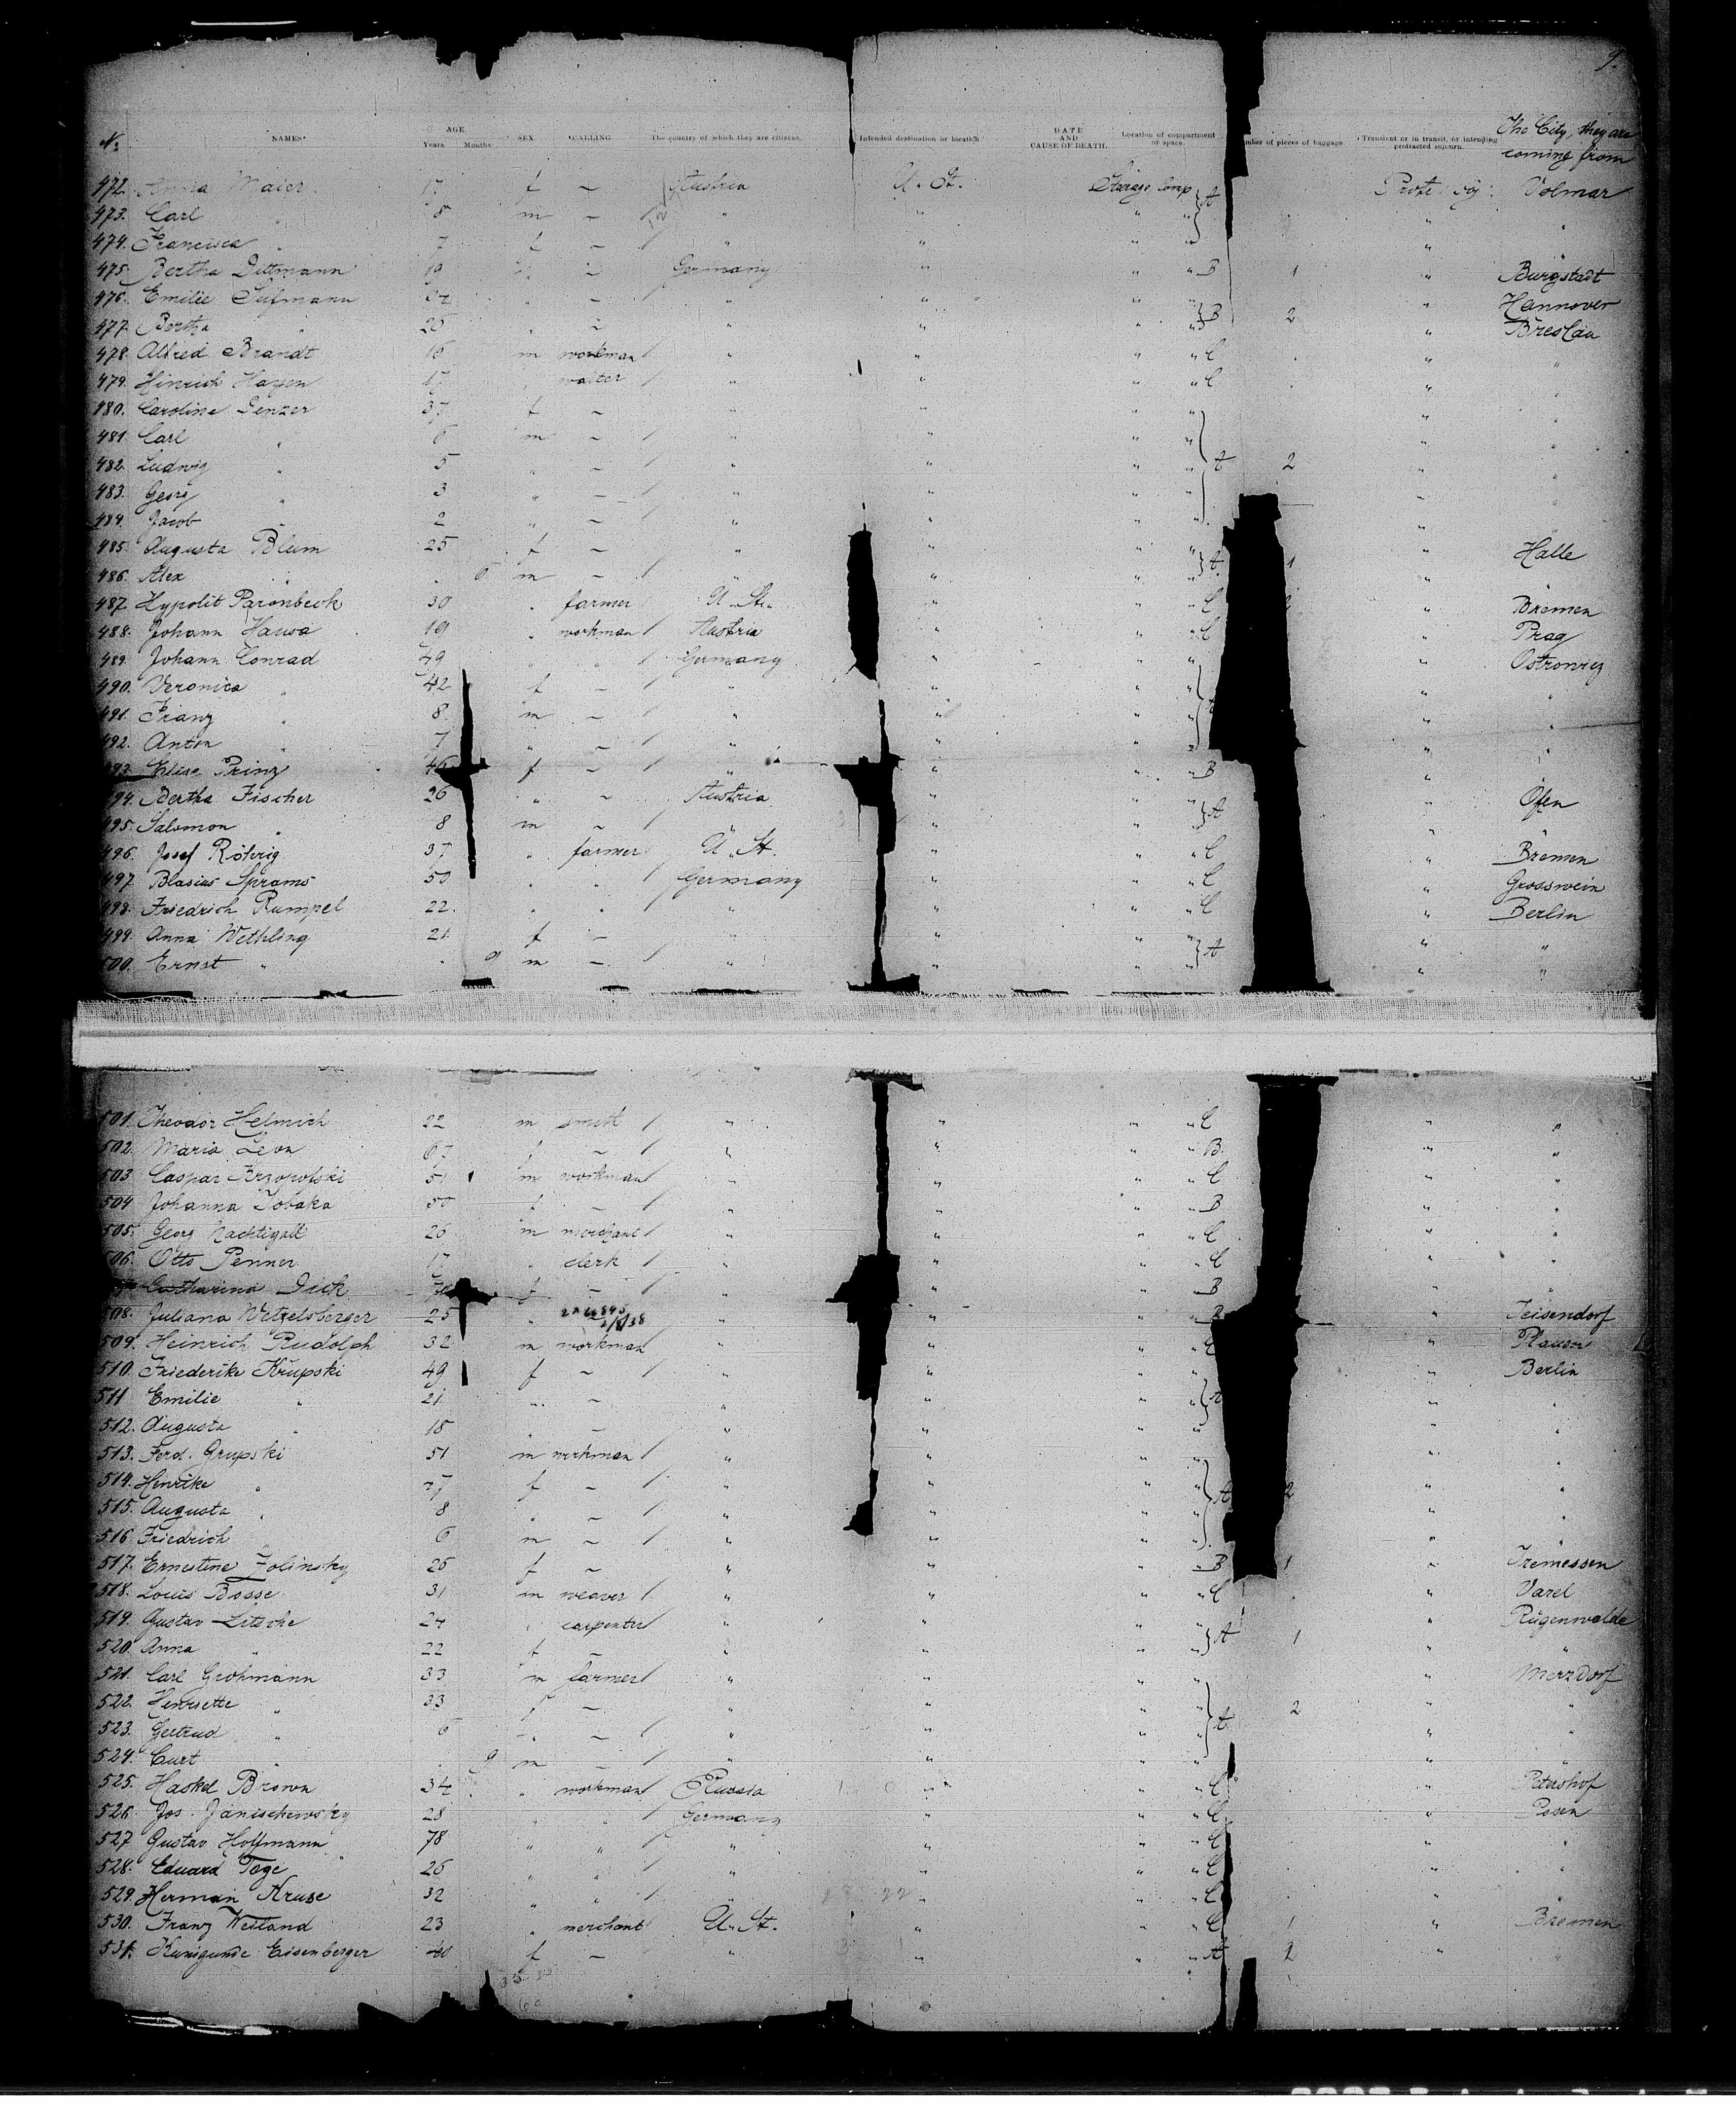 9.
No. NAMES. AGE. Years. Months. SEX. CALLING. The country of which they are citizens. Intended destination or location. DATE AND CAUSE OF DEATH. Location of compartment or space. mber of pieces of baggage. Transient or in transit, or intending protracted sojourn. The City, they are coming from
472. Anna Maier 17 f – Austria U. St. Steerage Comp Volmar
473. Carl " 8 m – " " " " } A " "
474. Francisca " 7 f – " " " " " "
475. Bertha Dittmann 19 " – Germany " " " B 1 " Burgstadt
476. Emilie " – " " " " " Hannover
477. Bertha " 25 " – " " " " } B 2 " Breslau
478. Alfred Brandt 16 m workman " " " " C " "
479. Hinrich Hagen 17 " waiter " " " " C " "
480. Caroline Genzer 37 f – " " " " " "
481. Carl " 6 m – " " " " " "
482. Ludwig " 5 " – " " " " A 2 " "
483. Georg " 3 " – " " " " " "
484. Jacob " 2 " – " " " " " "
485. Augusta Blum 25 f – " " " " " Halle
486. Alex " m – " " " " } A 1 " "
487. Hypolit Paronbeck 30 " farmer U. St. " " " C " Bremen
488. Johann Hausa 19 " workman Austria " " " C " Prag
489. Johann Conrad 49 " " Germany " " " " Ostrowig
490. Veronica " 42 f – " " " " " "
491. Franz " 8 m – " " " " " "
492. Anton " 7 " – " " " " " "
493. Elise Prinz 46 f – " " " " B " "
494. Bertha Fischer 26 " – Austria " " " " Ofen
495. Salomon " 8 m – " " " " } A " "
496. Josef Röhrig 37 " farmer U. St. " " " C " Bremen
497. Blasius Sprams 50 " " Germany " " " C " Grosswein
498. Friedrich Rumpel 22 " " " " " " C " Berlin
499. Anna Wethling 21 f – " " " " " "
500. Ernst " 9 m – " " " " } A " "
501. Theodor Helmich 22 m smith " " " " C " "
502. Maria Leon 67 f – " " " " B " "
503. Caspar 51 m workman " " " " C " "
504. Johanna Sobaka 50 f – " " " " B " "
505. Georg Nachtigall 26 m merchant " " " " C " "
506. Otto Penner 17 " clerk " " " " C " "
Catharina Dick f – " " " " B " "
508. Juliana Wetzelsberger 25 " " " " " B " Teisendorf
509. Heinrich Rudolph 32 m workman " " " " C " Plauen
510. Friederike Krupski 49 f – " " " " " Berlin
511. Emilie " 21 " – " " " " } A " "
512. Augusta " 18 " – " " " " " "
513. Ferd. Grupski 51 m workman " " " " " "
514. Henrike " f – " " " " A 2 " "
515. Augusta " 8 " – " " " " " "
516. Friedrich " 6 m – " " " " " "
517. Ernestine Zolinsky 25 f – " " " " B 1 " Tremessen
518. Louis Bosse 31 m weaver " " " " C " Varel
519. Gustav Litsche 24 " carpenter " " " " " Rügenwalde
520. Anna " 22 f – " " " " } A 1 " "
521. Carl Grohmann 33 m farmer " " " " " Merzdorf
522. Henriette " 33 f – " " " " 2 " "
523. Gertrud " 6 " – " " " " A " "
524. Curt " 9 m – " " " " " "
525. Haskel Brown 34 " workman Russia " " " C " Petershof
526. Jos. Janischewsky 28 " " Germany " " " C " Posen
527. Gustav Hoffmann 78 " " " " " " C " "
528. Eduard Tage 26 " " " " " " C " "
529. Herman Kruse 32 " " " " " " C " "
530. Franz Weiland 23 " merchant U. St. " " " C 1 " Bremen
531. Kunigunde Eisenberger 40 f – " " " " A 1 " "